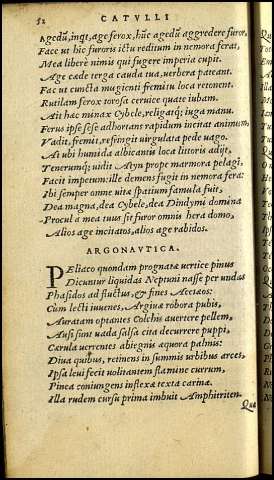 52 CATVLLI
Agedũ, inqt, age ferox, hũc agedũ aggredere furor,
Face ut hic furoris ictu reditum in nemora ferat,
Mea liberè nimis qui fugere imperia cupit.
Age cæde terga cauda tua, uerbera pateant.
Fac ut cuncta mugienti fremitu loca retonent.
Rutilam ferox torosa ceruice quate iubam.
Ait hæc minax Cybele, religatq; iuga manu.
Ferus ipse sese adhortans rapidum incitat animum,
Vadit, fremit, refringit uirgulata pede uago.
At ubi humida albicantis loca littoris adijt,
Tenerumq; uidit Atyn prope marmora pelagi,
Facit impetum: ille demens fugit in nemora fera:
Ibi semper omne uitæ spatium famula fuit,
Dea magna, dea Cybele, dea Dindymi domina
Procul a mea tuus sit furor omnis hera domo,
Alios age incitatos, alios age rabidos.
ARGONAVTICA.
PÆliaco quondam prognatæ uertice pinus
Dicuntur liquidas Neptuni nasse per undas
Phasidos ad fluctus, & fines Aetæos:
Cum lecti iuuenes, Argiuæ robora pubis,
Auratam optantes Colchis auertere pellem,
Ausi sunt uada salsa cita decurrere puppi,
Cærula uerrentes abiegnis æquora palmis:
Diua quibus, retinens in summis urbibus arces,
Ipsa leui fecit uolitantem flamine currum,
Pinea coniungens inflexæ texta carinæ.
Illa rudem cursu prima imbuit Amphitriten.
Quæ